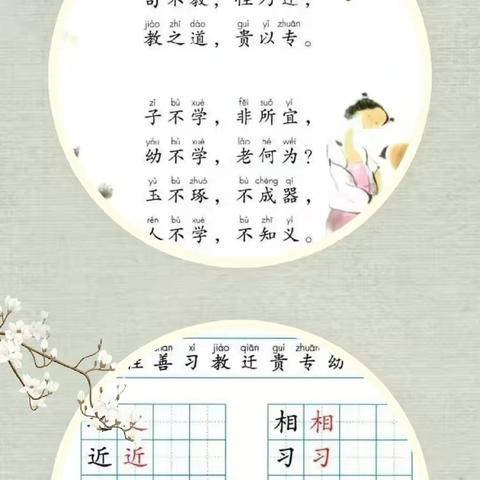 苟不教，性乃迁，
jiào zhī dào guì yǐ zhuān
教之道，贵以专。
zǐ bù xué fēi suǒ yí
子不学，非所宜，
yòu bù xué lǎo hé wéi
幼不学，老何为？
yù bù zhuó bù chéng qì
玉不琢，不成器，
rén bù xué bù zhī yì
人不学，不知义。
xí jiào qiān guì zhuān
性善习教迁贵专幼
相 相
近 近
习 习